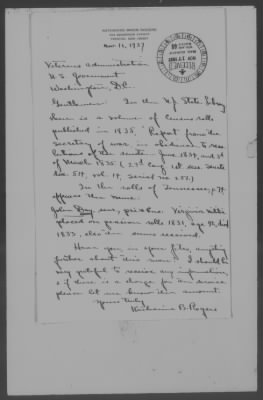 Nov. 16, 1937
Veterans Administration
U.S. Government
Washington, D.C.
Gentlemen: In the N.J. State Library
there is a volume of Census rolls
published in 1835, "Report from the
Secretary of War in obedience to reso-
lutions of the Senate June 1834, and 3d
of March 1835 (23d Cong. 1st sess. Senate
doc. 514, vol. 14, Serial no. 251)
In the rolls of Tennessee, p. 74
appears the name:
John Day, sen., private. Virginia militia
placed on pension rolls 1831, age 92, died
1833, also the sums received.
Have you, in your files, anything
further about this man? I should be
very grateful to receive any information,
& if there is a charge for this service
please let me know the amount.
Yours truly,
Katharine B. Rogers